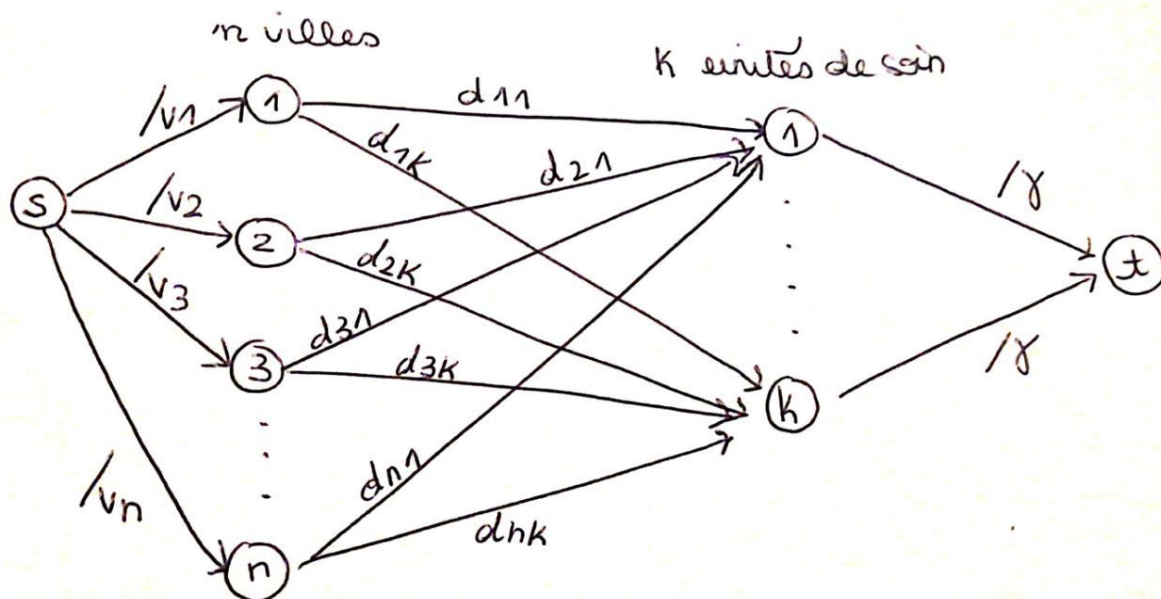 n villes
k unités de soin
s
/v1
/v2
/v3
/vn
1
2
3
n
d11
d1k
d21
d2k
d31
d3k
dn1
dnk
1
k
/γ
/γ
t